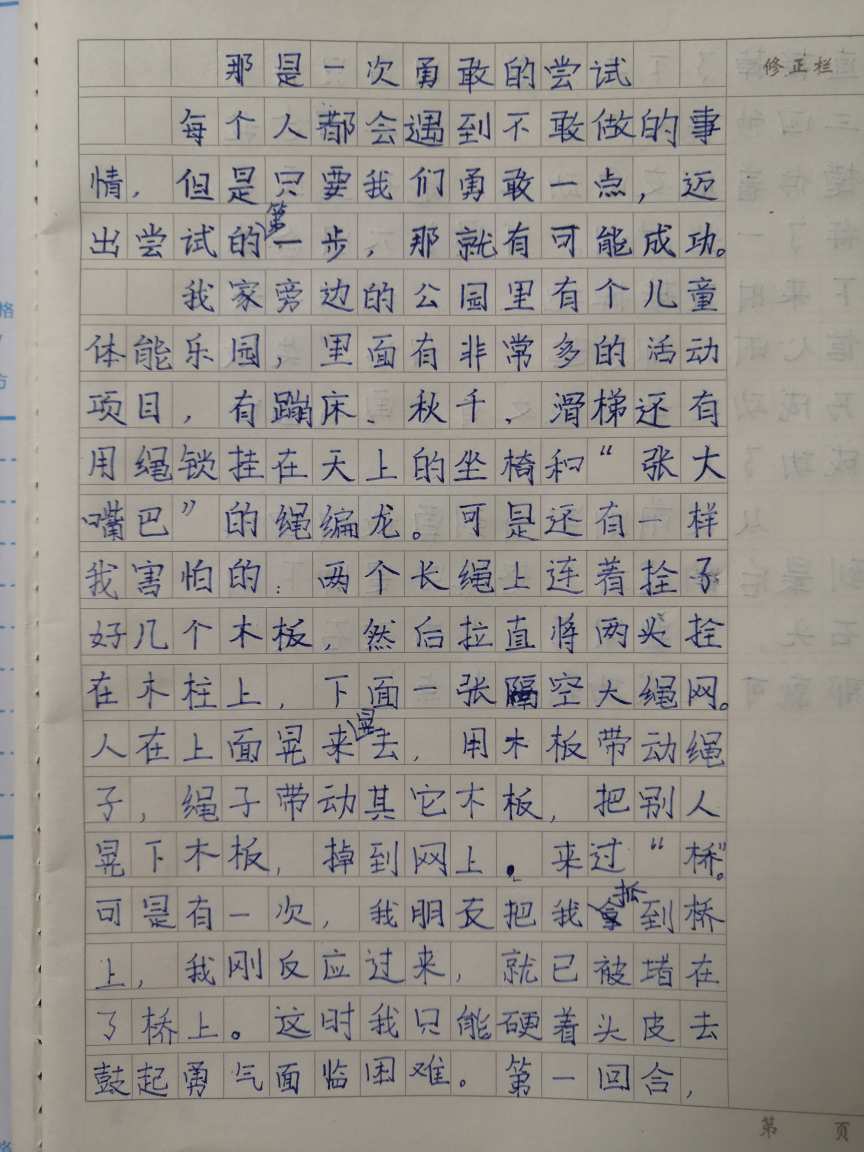 那是一次勇敢的尝试
修正栏
每个人都会遇到不敢做的事
情，但是只要我们勇敢一点，迈
出尝试的第一步，那就有可能成功。
我家旁边的公园里有个儿童
体能乐园，里面有非常多的活动
项目，有蹦床、秋千、滑梯还有
用绳锁挂在天上的坐椅和“张大
嘴巴”的绳编龙。可是还有一样
我害怕的：两个长绳上连着拴子
好几个木板，然后拉直将两头拴
在木柱上，下面一张隔空大绳网。
人在上面晃来晃去，用木板带动绳
子，绳子带动其它木板，把别人
晃下木板，掉到网上。来过“桥”。
可是有一次，我朋友把我抓到桥
上，我刚反应过来，就已被堵在
了桥上。这时我只能硬着头皮去
鼓起勇气面临困难。第一回合，
第 页